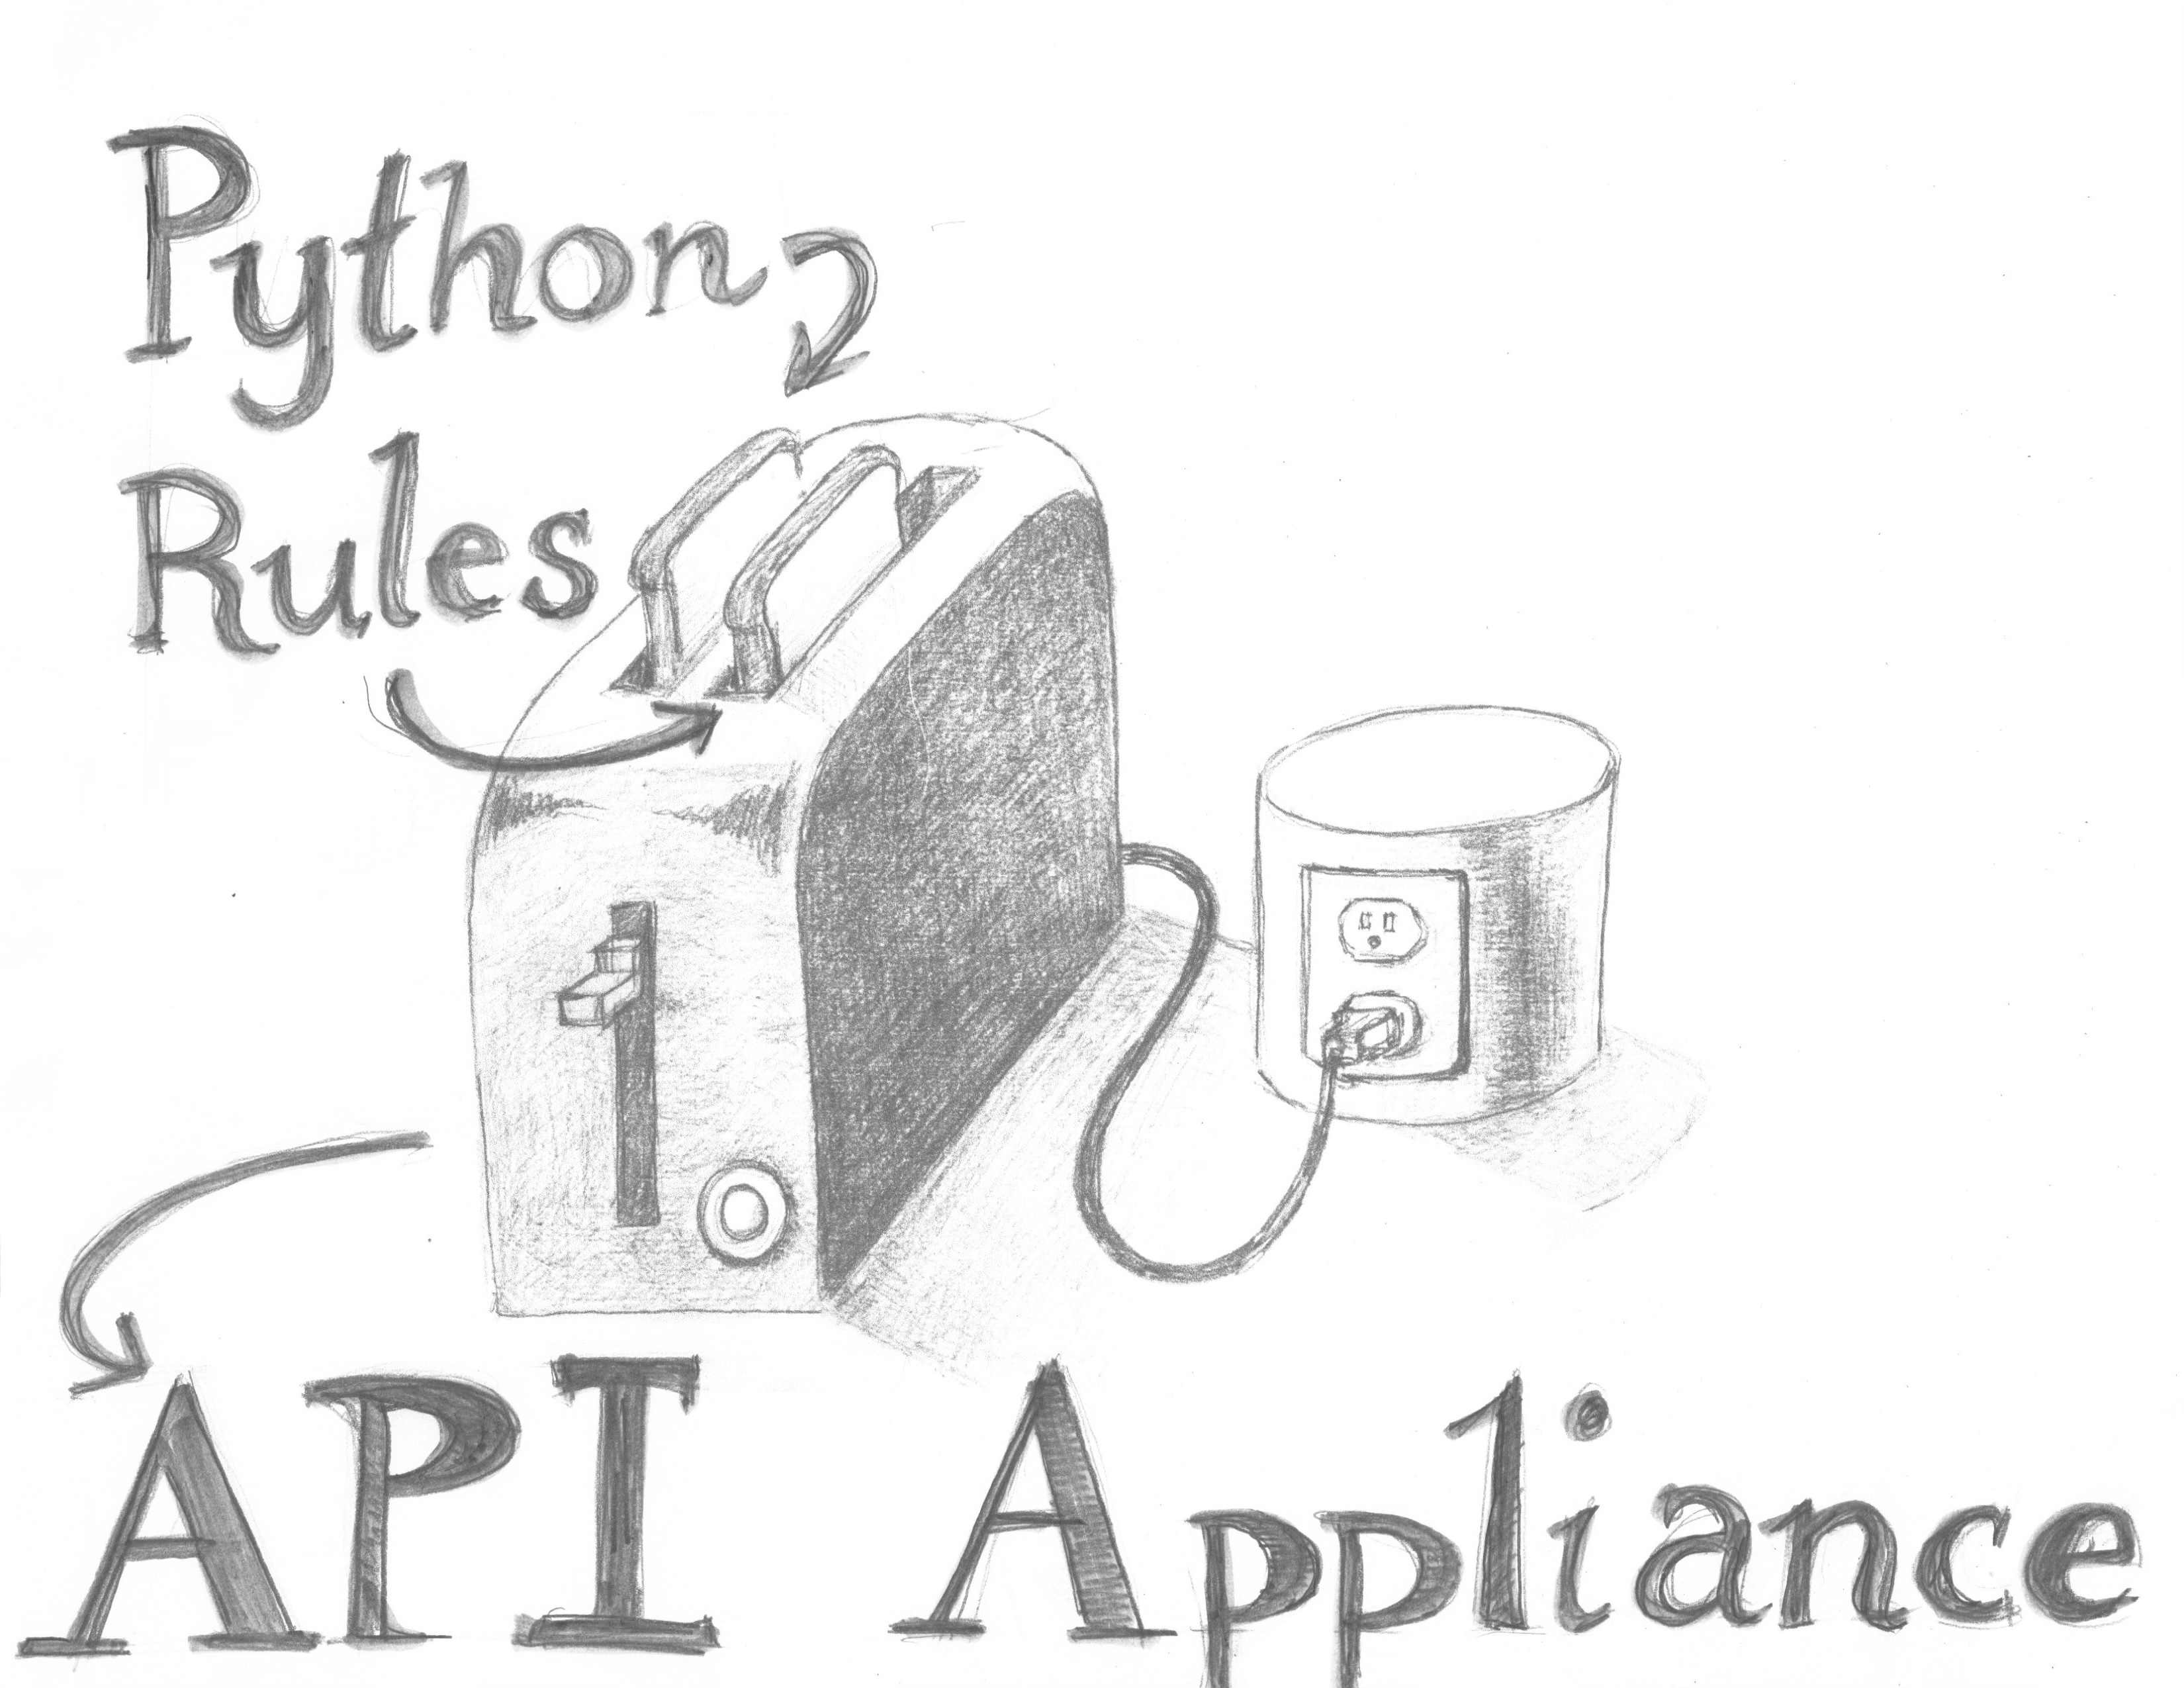 Python
Rules
API Appliance